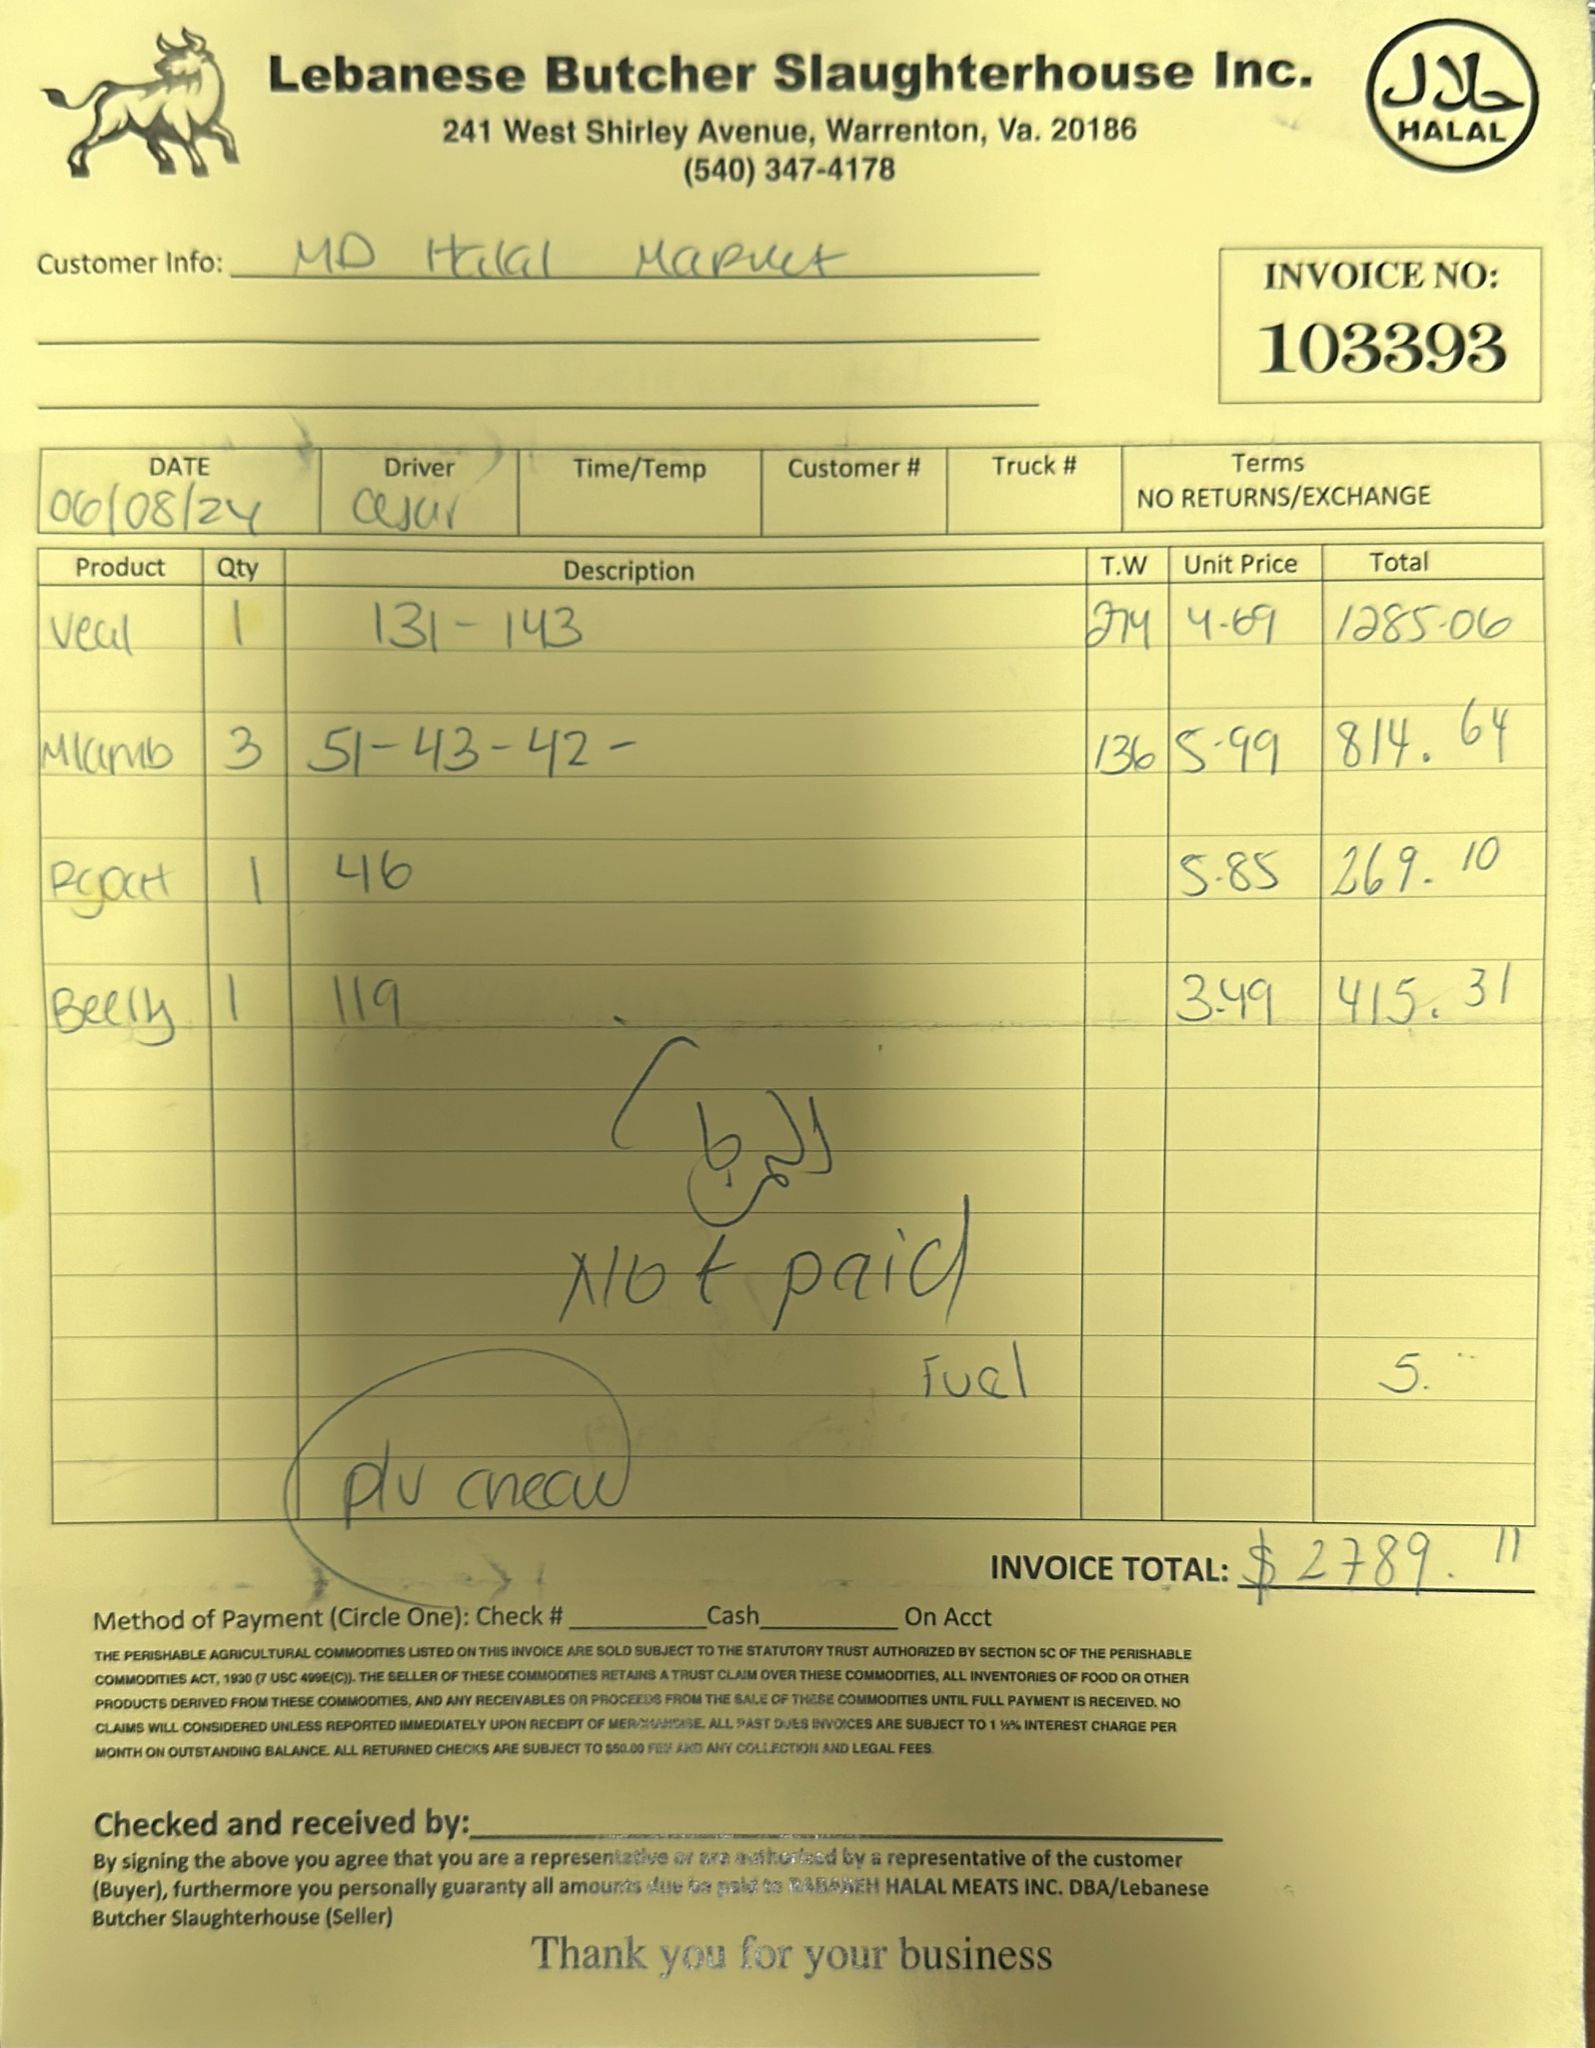 Lebanese Butcher Slaughterhouse Inc.
حلال
HALAL
241 West Shirley Avenue, Warrenton, Va. 20186
(540) 347-4178
Customer Info: MD Halal Market
INVOICE NO:
103393
DATE Driver Time/Temp Customer # Truck # Terms
06/08/24 Cesar NO RETURNS/EXCHANGE
Product Qty Description T.W Unit Price Total
Veal 1 131-143 274 4.69 1285.06
Mlamb 3 51-43-42- 136 5.99 814.64
Rgoat 1 46 5.85 269.10
1 119 3.49 415.31
Not paid
Fuel 5.
INVOICE TOTAL: $ 2789.11
Method of Payment (Circle One): Check # Cash On Acct
THE PERISHABLE AGRICULTURAL COMMODITIES LISTED ON THIS INVOICE ARE SOLD SUBJECT TO THE STATUTORY TRUST AUTHORIZED BY SECTION 5C OF THE PERISHABLE
COMMODITIES ACT, 1930 (7 USC 499E(C)). THE SELLER OF THESE COMMODITIES RETAINS A TRUST CLAIM OVER THESE COMMODITIES, ALL INVENTORIES OF FOOD OR OTHER
PRODUCTS DERIVED FROM THESE COMMODITIES, AND ANY RECEIVABLES OR PROCEEDS FROM THE SALE OF THESE COMMODITIES UNTIL FULL PAYMENT IS RECEIVED. NO
CLAIMS WILL CONSIDERED UNLESS REPORTED IMMEDIATELY UPON RECEIPT OF MERCHANDISE. ALL PAST DUES INVOICES ARE SUBJECT TO 1 ½% INTEREST CHARGE PER
MONTH ON OUTSTANDING BALANCE. ALL RETURNED CHECKS ARE SUBJECT TO $50.00 FEE AND ANY COLLECTION AND LEGAL FEES.
Checked and received by:
By signing the above you agree that you are a representative or are authorized by a representative of the customer
(Buyer), furthermore you personally guaranty all amounts due be paid to RABABEH HALAL MEATS INC. DBA/Lebanese
Butcher Slaughterhouse (Seller)
Thank you for your business